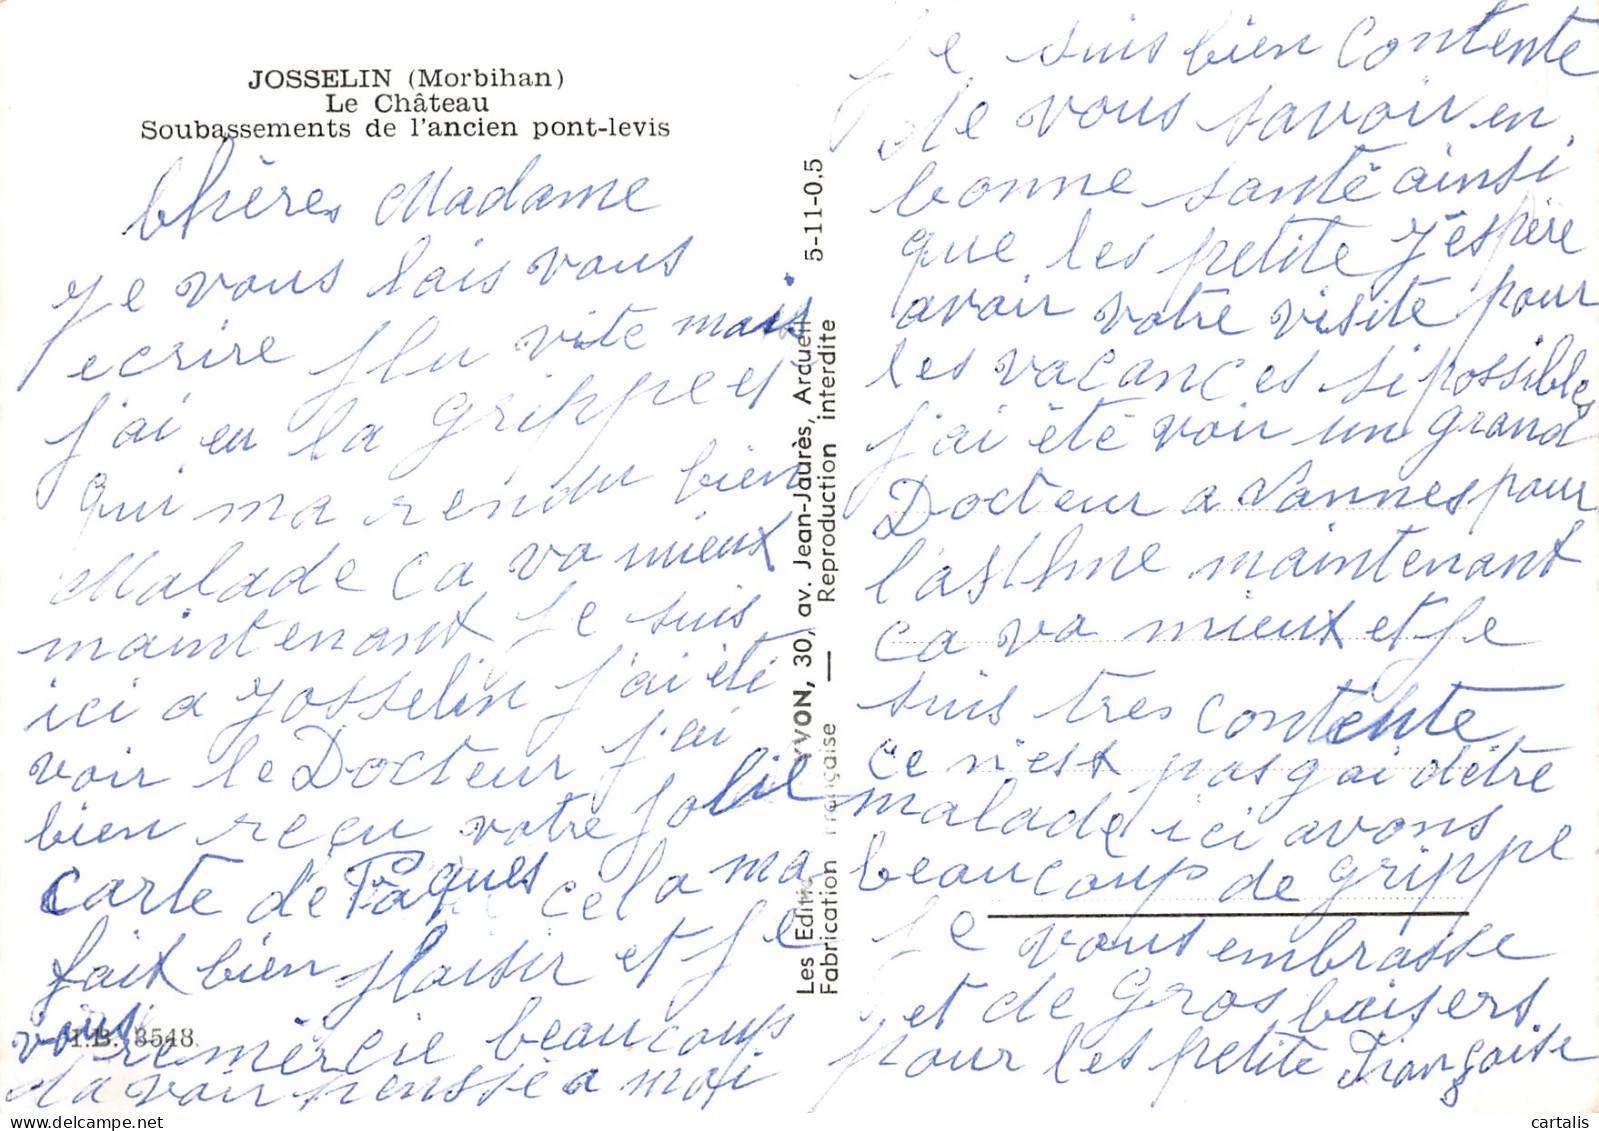 JOSSELIN (Morbihan)
Le Château
Soubassements de l'ancien pont-levis
Chères Madame
Je vous lais vous
ecrire plu vite mais
j'ai eu la grippe et
qui ma rendu bien
Malade ca va mieux
maintenant Je suis
ici a Josselin j'ai été
voir le Docteur j'ai
bien reçu votre jolie
carte de Pâques cela ma
fait bien plaisir et Je
vous remércie beaucoup
I.B. 3548.
d'avoir penssé a moi
Les Editions YVON, 30, av. Jean-Jaurès, Arcueil 5-11-0.5
Fabrication Française — Reproduction interdite
Je suis bien contente
de vous savoir en
bonne santé ainsi
que les petite J'éspère
avoir votre visite pour
les vacances si possibles
j'ai été voir un grand
Docteur a Vannes pour
l'asthme maintenant
ca va mieux et Je
suis tres contente
ce n'est pas gai d'être
malade ici avons
beaucoup de grippe
Je vous embrasse
et de Gros baisers
pour les petite Françoise
cartalis